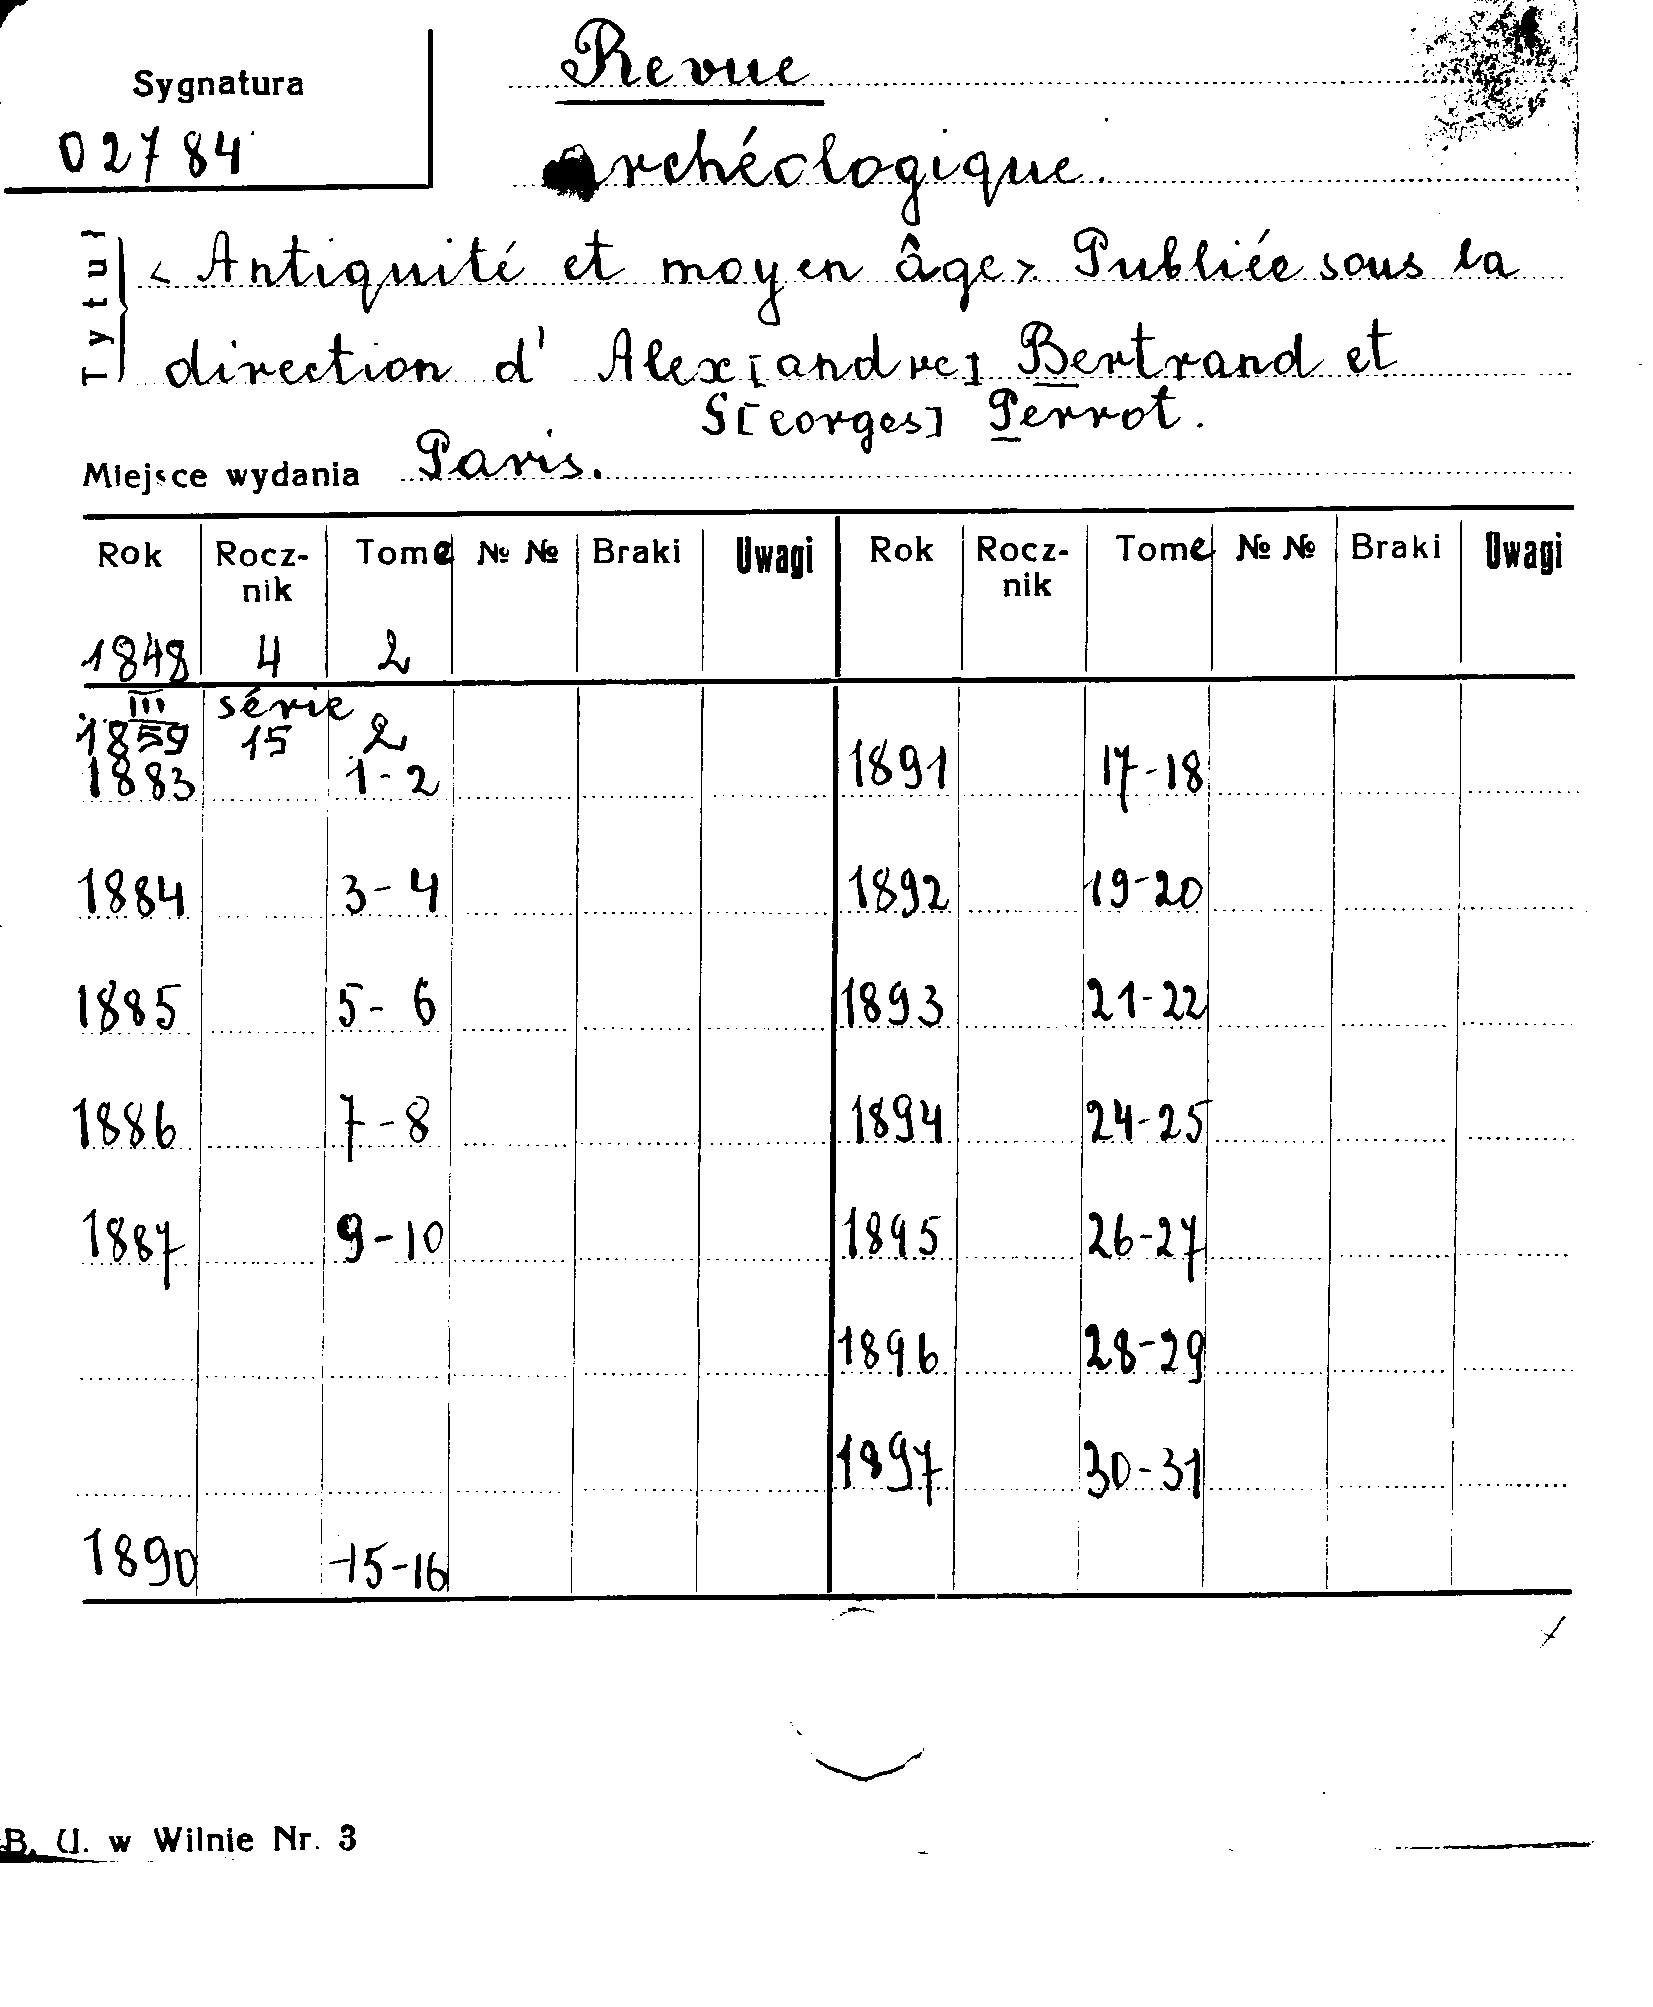 Sygnatura
02784
Revue
archéologique.
Tytuł
< Antiquité et moyen âge> Publiée sous la
direction d' Alex[andre] Bertrand et
G[eorges] Perrot.
Miejsce wydania Paris.
Rok Rocz-nik Tome № № Braki Uwagi Rok Rocz-nik Tome № № Braki Uwagi
1848 4 2
III série
1859 15 2
1883 1-2 1891 17-18
1884 3-4 1892 19-20
1885 5-6 1893 21-22
1886 7-8 1894 24-25
1887 9-10 1895 26-27
1896 28-29
1897 30-31
1890 15-16
B. U. w Wilnie Nr. 3